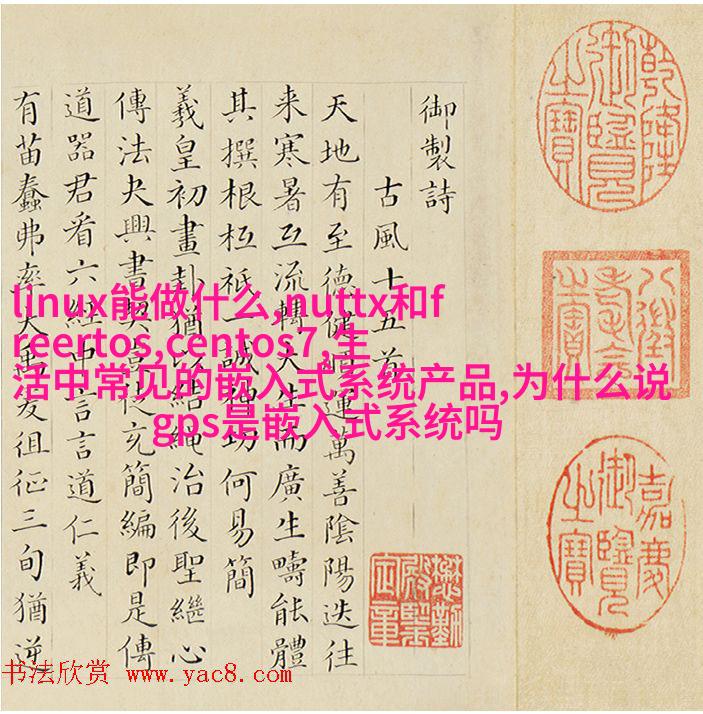 乾隆御覽之寶
八徵耄念之寶
嘉慶御覽之寶
御製詩
古風十五首
天地有至德健運萬善陰陽迭往
来寒暑互流轉大生而廣生疇能體
其撰根柢祇一誠功何易簡
羲皇初畫卦猶以結繩治後聖繼心
傳法夬興書契簡編即是傳
道器君看六經中言言道仁義
有苗蠢弗率大禹爰徂征三旬猶逆
懋勤殿鑒定章
linux能做什么,nuttx和f
reertos,centos7,生
活中常见的嵌入式系统产品,为什么说
gps是嵌入式系统吗
书法欣赏 www.yac8.com